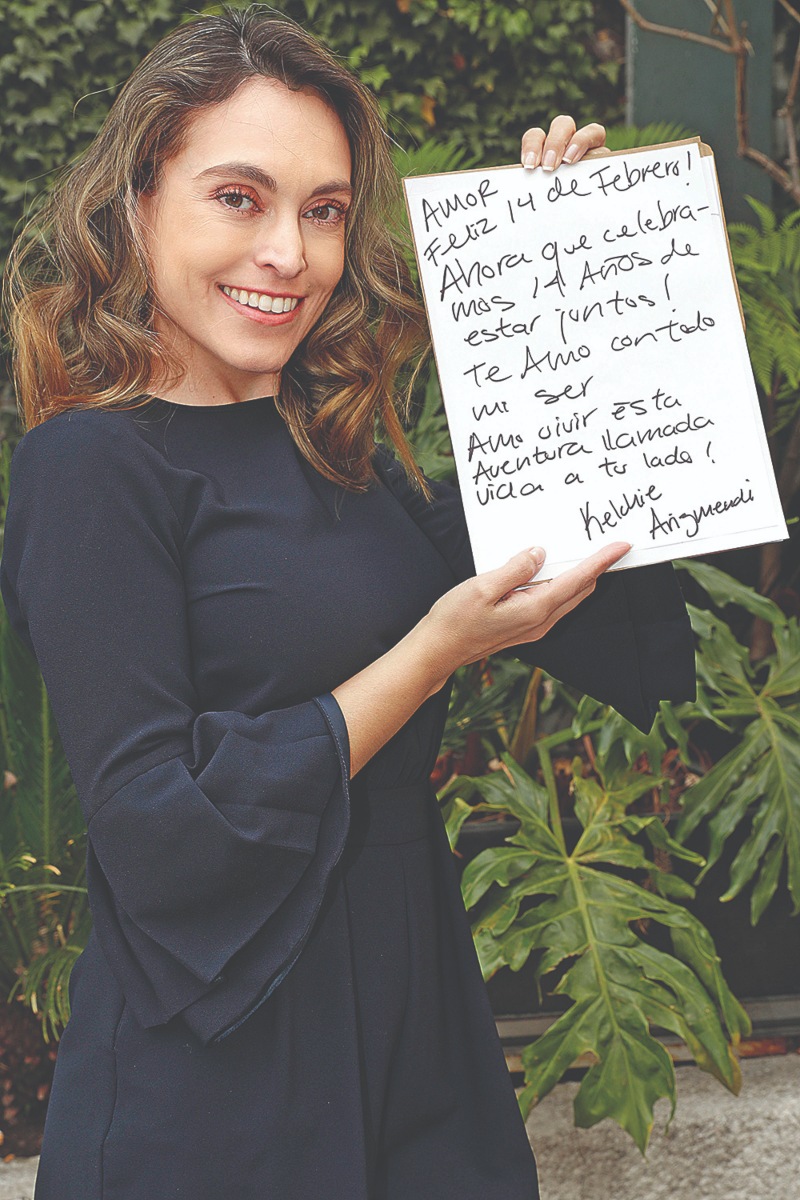 AMOR
Feliz 14 de Febrero!
Ahora que celebra-
mos 14 Años de
estar juntos!
te Amo con todo
mi ser
Amo vivir esta
Aventura llamada
vida a tu lado!
Kelchie
Arizmendi